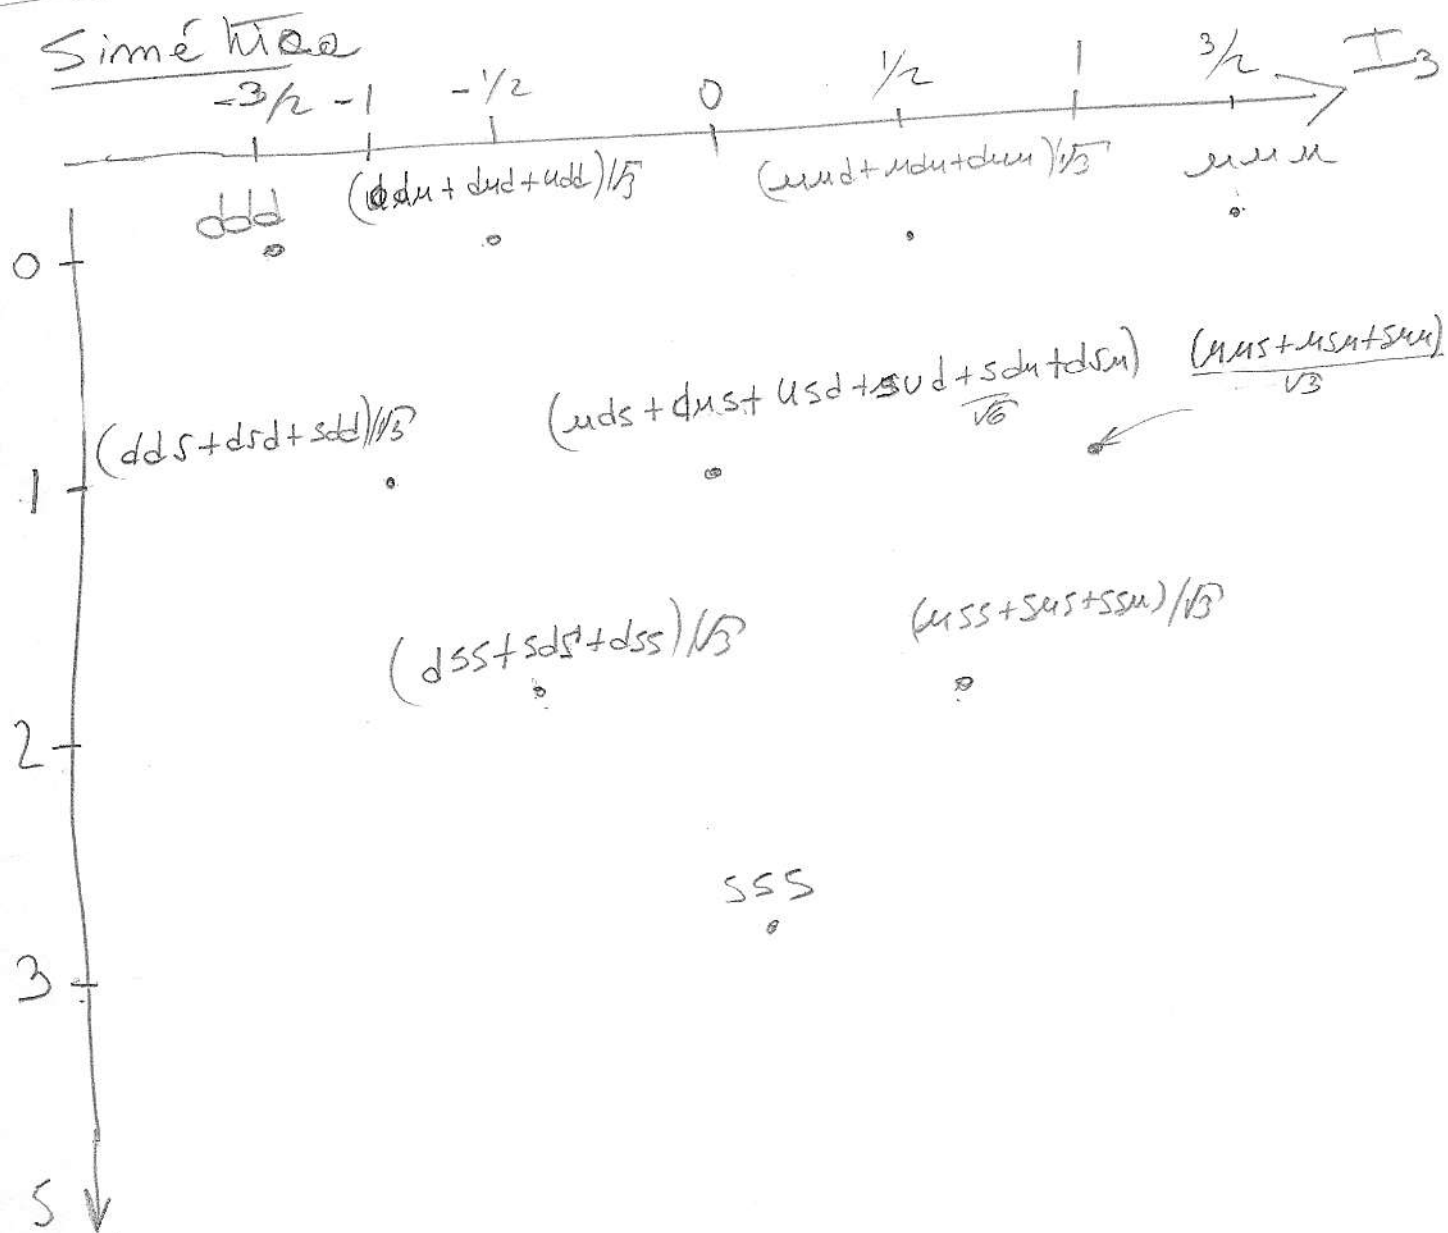 Simétrica
-3/2 -1 -1/2 0 1/2 1 3/2 I₃
ddd (ddu + dud + udd)/√3 (uud + udu + duu)/√3 uuu
0
(dds + dsd + sdd)/√3 (uds + dus + usd + sud + sdu + dsu)/√6 (uus + usu + suu)/√3
1
(dss + sds + dss)/√3 (uss + sus + ssu)/√3
2
sss
3
S